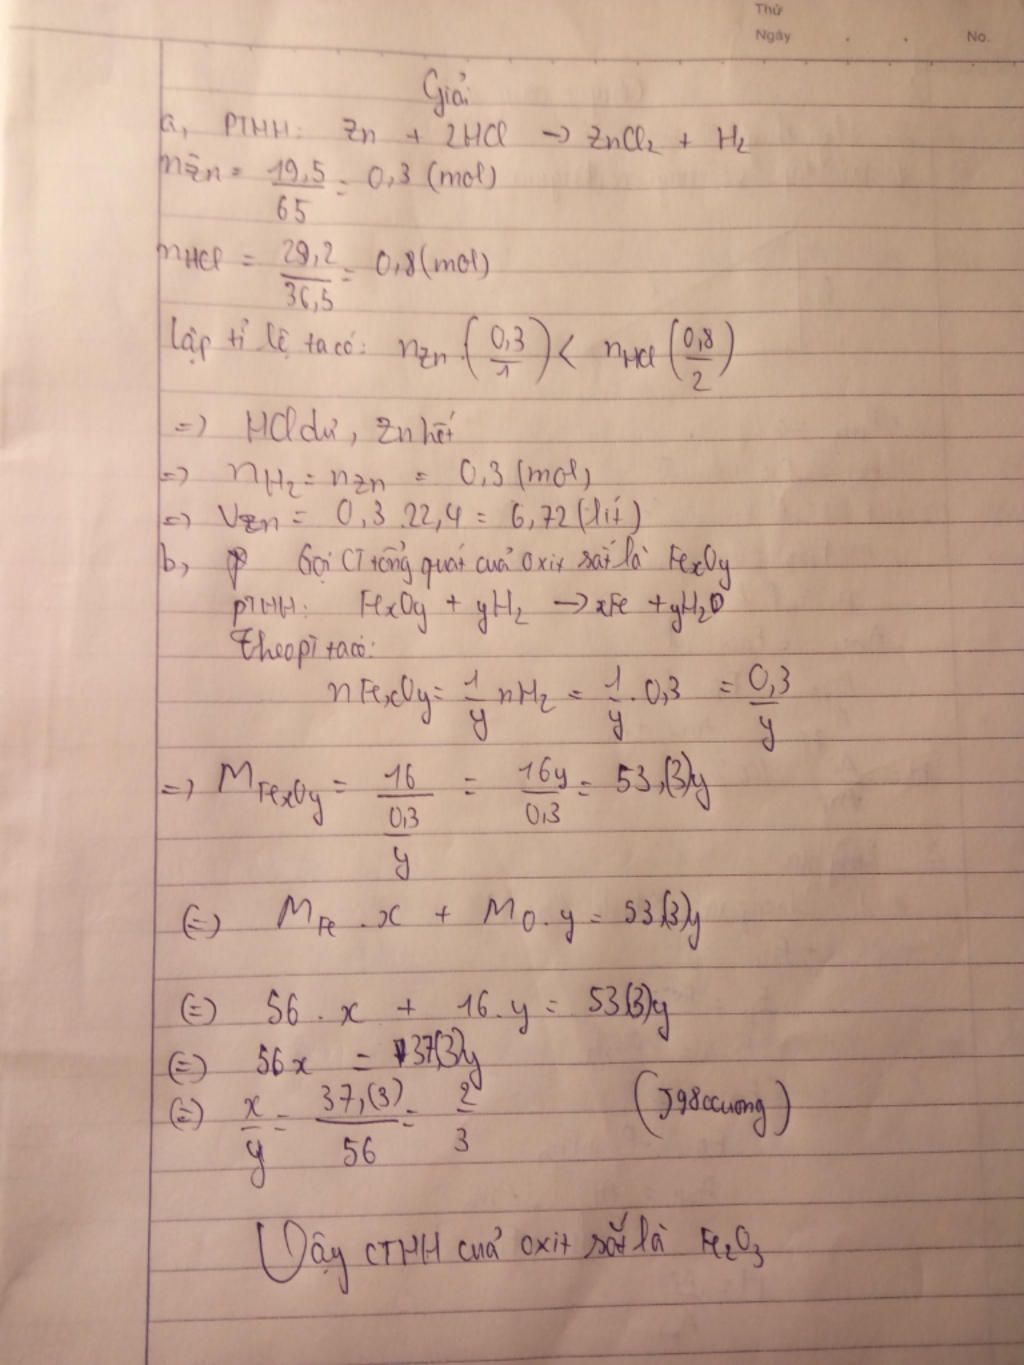 Thứ
Ngày . . No.
Giải
a, PTHH: Zn + 2HCl → ZnCl₂ + H₂
nZn = 19,5/65 = 0,3 (mol)
nHCl = 29,2/36,5 = 0,8 (mol)
lập tỉ lệ ta có: nZn (0,3/1) < nHCl (0,8/2)
=> HCl dư, Zn hết
=> nH₂ = nZn = 0,3 (mol)
=> VZn = 0,3.22,4 = 6,72 (lít)
b, Gọi CT tổng quát cuả oxit sắt là FexOy
PTHH: FexOy + yH₂ → xFe + yH₂O
Theo pT ta có:
nFexOy = 1/y nH₂ = 1/y . 0,3 = 0,3/y
=> MFexOy = 16/(0,3/y) = 16y/0,3 = 53,(3)y
(=) MFe . x + MO . y = 53,(3)y
(=) 56 . x + 16 . y = 53(3)y
(=) 56x = 37(3)y
(=) x/y = 37,(3)/56 = 2/3 (J98ccuong)
Vậy CTHH cuả oxit sắt là Fe₂O₃